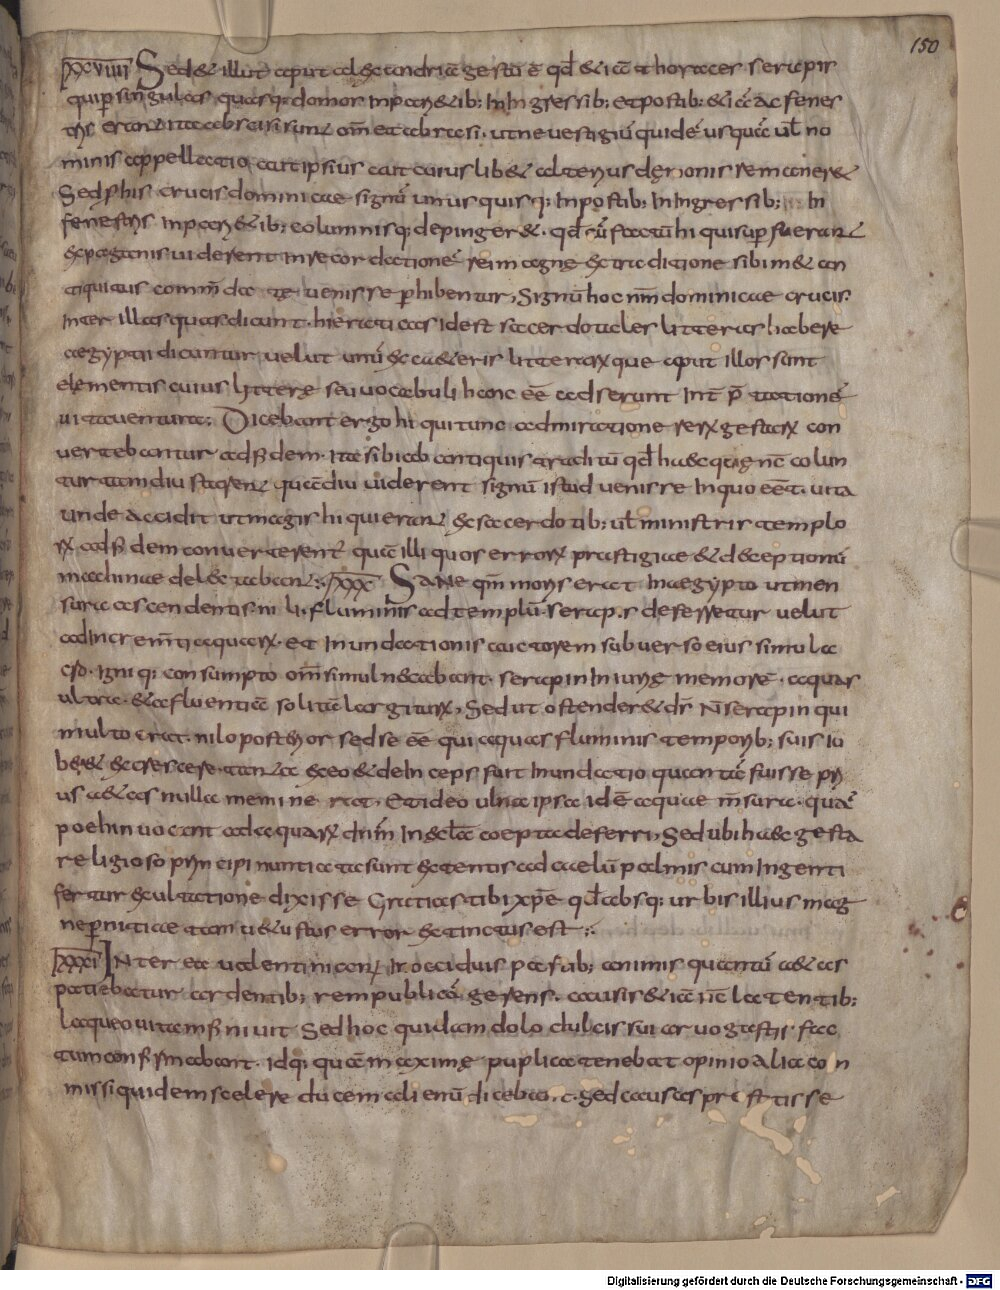 150
XXVIIII Sed & illut aput alexandriā gestū ē qđ & iā thoraces serapis
qui p singulas quasq; domos in pari&ib; in ingressib; et postib; & iā ac fenes
tris erant ita abscisi sunt om̄ et abrasi . ut ne vestigiū quidē usquā ul̄ no
minis appellatio aut ipsius aut cuius lib& alterius demonis remaner&
Sed p his crucis dominicae signū unus quisq; in postib; in ingressib; in
fenestris in pari&ib; columnisq; depinger& . qđ cū factū hi qui sup fuerant
ex paganis viderent in recordationē rei magnę ex traditione sibim& an
tiquitus commđata venisse phibentur, Signū hoc nr̄m dominicae crucis
inter illas quas dicunt . hieraticas id est sacerdotales litteras habere
aegyptii dicuntur velut unū ex c&eris litterarꝝ que aput illos sunt
elementis cuius litterę seu vocabuli hanc eē adserunt int̄ p̄tationē
vita ventura; Dicebant ergo hi qui tunc admiratione rerꝝ gestarꝝ con
vertebantur ad fidem . ita sibi ab antiquis traditū qđ haec quę nc̄ colun
tur tamdiu starent quādiu viderent signū istud venisse in quo eēt . vita
unde accidit ut magis hi qui erant ex sacerdotib; ul̄ ministris templo
rꝝ ad fidem converterent quā illi quos errorꝝ prestigiae & deceptionū
machinae delectabant; XXX Sane qm̄ moris erat in aegypto ut men
sura ascendentis nili fluminis ad templū serapis deferretur velut
ad incrementi aquarꝝ . et inundationis auctorem subverso eius simula
cro . igniq; consumpto om̄s simul negabant . serapin iniurię memorē . aquas
ultra . & afluentiā solitā largiturꝝ, Sed ut ostender& ds̄ n̄ serapin qui
multo erat . nilo posterior sed se eē qui aquas fluminis temporib; suis iu
be&& excrescere . tanta ex eo & deinceps fuit inundatio quantā fuisse pri
us a&as nulla meminerat . Et ideo ulna ipsa idē aquae m̄sura . quā
poehin vocant ad aquarꝝ dn̄m in ecl̄a coepta deferri, Sed ubi haec gesta
religioso principi nuntiata sunt extentis ad caelū palmis cum ingenti
fertur exultatione dixisse Gratias tibi xp̄e qđ absq; urbis illius mag
ne pernitiae tam v&ustus error extinctus est;
XXXI Inter ea valentinianus in occiduis partib; animis quantū a&as
patiebatur ardentib; rempublicā gerens . causis & iā nc̄ latentib;
laqueo vitam finivit Sed hoc quidam dolo ducis sui arvogastis fac
tum confirmabant . idq; quā maxime puplica tenebat opinio alia com
missi quidem scelere ducem alienū dicebant . Sed causas prestitisse
Digitalisierung gefördert durch die Deutsche Forschungsgemeinschaft - DFG